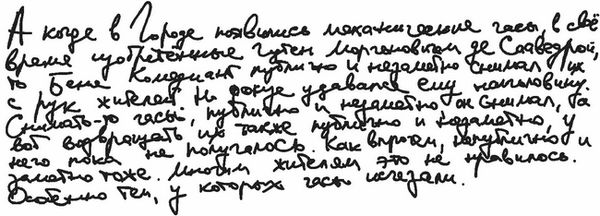 А когда в Городе появились механические часы, в своё
время изобретённые гутен Моргеновичем де Сааведрой,
то Беня Комедиант публично и незаметно снимал их
с рук жителей. Но фокус удавался ему наполовину.
Снимать-то часы, публично и незаметно он снимал, да
вот возвращать их также публично и незаметно, у
него пока не получалось. Как впрочем, непублично и
заметно тоже. Многим жителям это не нравилось.
Особенно тем, у которых часы исчезали.